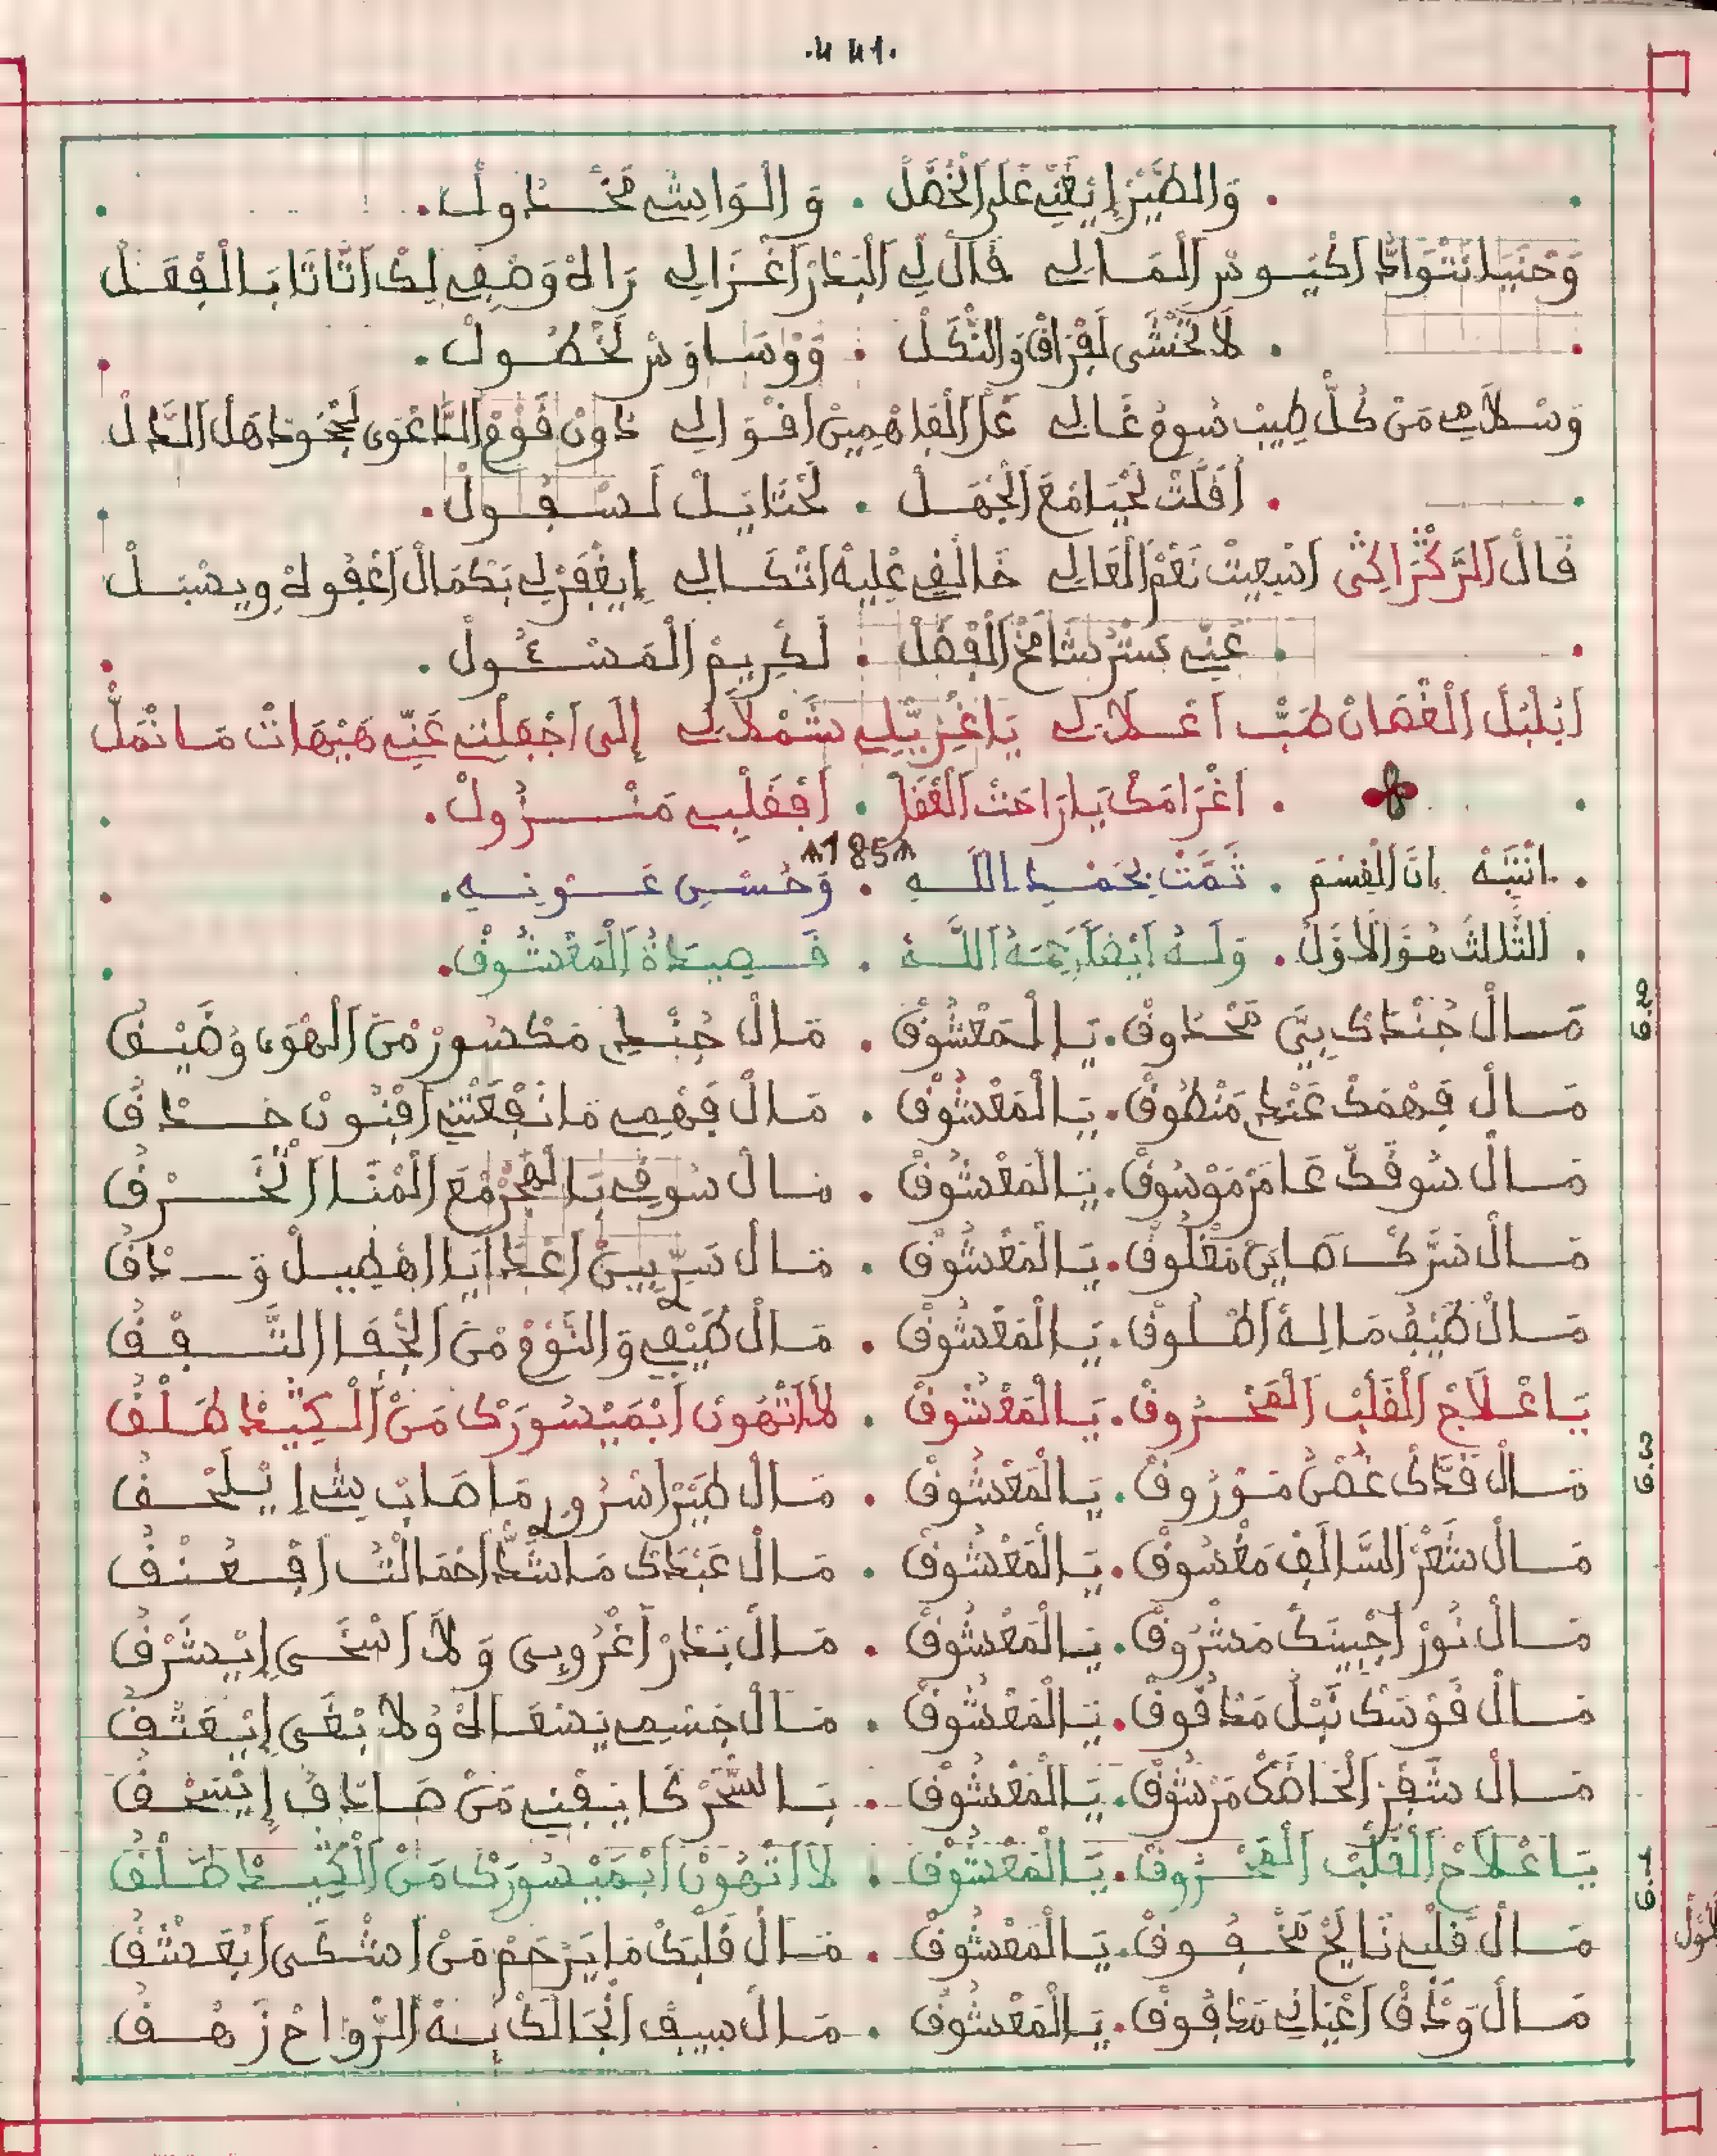 .441.
وَالطَّيْرْ إيْغَنِّي عَلَى الْخَصَلْ . وَالْوَاشِي مَخْدُولْ.
وَحْنَايَا نَتْوَادُّ اكْيُوسْ الْمَالِي قَالْ لِي الْبَدْرْ اغْزَالِي رَاهْ وَصْفِي لِكْ اتَّاتَا بَالْفِعَلْ
. لَا تَخْشَى لَفْرَاقْ وَالنّْكَلْ . وَوْسَاوَسْ لَخْصُولْ.
وَسْلَامِي مَنْ كُلّْ طِيبْ سُومُ غَالِي عَلَى الْفَاهْمِينْ اقْوَالِي دُونْ قَوْمْ الدَّعْوَى لَجْحُودْ هَلْ الدَّلْ
. اقَلَّتْ لَحْيَا مْعَ الْجْهَلْ . لَحْتَايَلْ لَسْفُولْ.
قَالْ الرّْكْرَاكِي اشْفِيعْتْ نَعْمْ الْعَالِي خَالْقِي عْلِيهْ اتْكَالِي إيَغْفَرْ لِي بَكْمَالْ اعْفُوهْ وِيسْبَلْ
. عَنِّي سَتْرْ شَامَخْ الْفْضَلْ . لَكْرِيمْ الْمَسْئُولْ.
ابُلْبُلْ الْغْصَانْ طَبّْ اعْلَالِي يَا غْزِيّْلِي شَمْلَالِي إلَى اجْفَلْتِ عَنِّي هَيْهَاتْ مَا نْمَلْ
. اغْرَامَكْ يَا رَاحْتْ الْعْقَلْ . افْقَلْبِي مَنْزُولْ.
185
. انْتَبَهْ إنَّ الْقِسْمَ . تَمَّتْ بِحَمْدِ اللَّهِ . وَحُسْنِ عَوْنِهِ.
. الثَّالِثْ هُوَ الْأَوَّلْ . وَلَهُ أَيْضًا رَحِمَهُ اللَّهُ . قَصِيدَةُ الْمَعْشُوقْ.
مَالْ خَدَّكْ بِيَّ مَحْدُوقْ . يَا الْمَعْشُوقْ . مَالْ جَنْدِي مَكْسُورْ مْنْ الْهْوَى وُضَيْفْ
مَالْ فَهْمَكْ عَنْدِي مَنْطُوقْ . يَا الْمَعْشُوقْ . مَالْ فَهْمِي مَا نَفْعَتْنِي افْنُونْ حَدْقْ
مَالْ سُوقَكْ عَامَرْ مَوْسُوقْ . يَا الْمَعْشُوقْ . مَالْ سُوقِي بَالْهْجَرْ مْعَ الْمْنَا الْخْرْقْ
مَالْ سَرَّكْ صَايَنْ مَغْلُوقْ . يَا الْمَعْشُوقْ . مَالْ سَرِّي بِينْ اعْدَايَا
مَالْ طَيْفْ مَالِهْ اطْلُوقْ . يَا الْمَعْشُوقْ . مَالْ طَيْفِي وَالنَّوْمْ مْنْ الْجْفَا
يَا عْلَاجْ الْقَلْبْ الْمَحْرُوقْ . يَا الْمَعْشُوقْ . لَا اتْهُونْ ابْمَيْسُورَكْ مَنْ الْكِيدْ طَلْقْ
مَالْ قَدَّكْ غُصْنْ مَوْرُوقْ . يَا الْمَعْشُوقْ . مَالْ طَيْرْ اسْرُورِي مَا صَابْ شِي إيْلَحْقْ
مَالْ شَعْرْ السَّالَفْ مَغْسُوقْ . يَا الْمَعْشُوقْ . مَالْ عَبْدَكْ مَا شَدّْ احْمَالْتُ افْعُنْقْ
مَالْ نُورْ اجْبِينَكْ مَشْرُوقْ . يَا الْمَعْشُوقْ . مَالْ بَدْرْ اغْرُوبِي وَلَا اسْخَى إيْشَرْقْ
مَالْ قَوْسَكْ نَبْلُ مَدْفُوقْ . يَا الْمَعْشُوقْ . مَالْ جَسْمِي يَسْعَالْهْ وُلَا بْغَى إيْعَتْقْ
مَالْ شَفْرْ الْحَاضَكْ مَرْشُوقْ . يَا الْمَعْشُوقْ . بَالسّْحَرْ كَايَفْنِي مَنْ صَادَفْ إيْسَحْقْ
يَا عْلَاجْ الْقَلْبْ الْمَحْرُوقْ . يَا الْمَعْشُوقْ . لَا اتْهُونْ ابْمَيْسُورَكْ مَنْ الْكِيدْ طَلْقْ
مَالْ قَلْبِي نَايَحْ مَخْفُوقْ . يَا الْمَعْشُوقْ . مَالْ قَلْبَكْ مَا يَرْحَمْ مَنْ اشْكَى ابْعَشْقْ
مَالْ وَدْقْ اعْيَانِي مَدْفُوقْ . يَا الْمَعْشُوقْ . مَالْ سِيفْ انْجَالَكْ بِهْ الرّْوَاحْ زَهْقْ